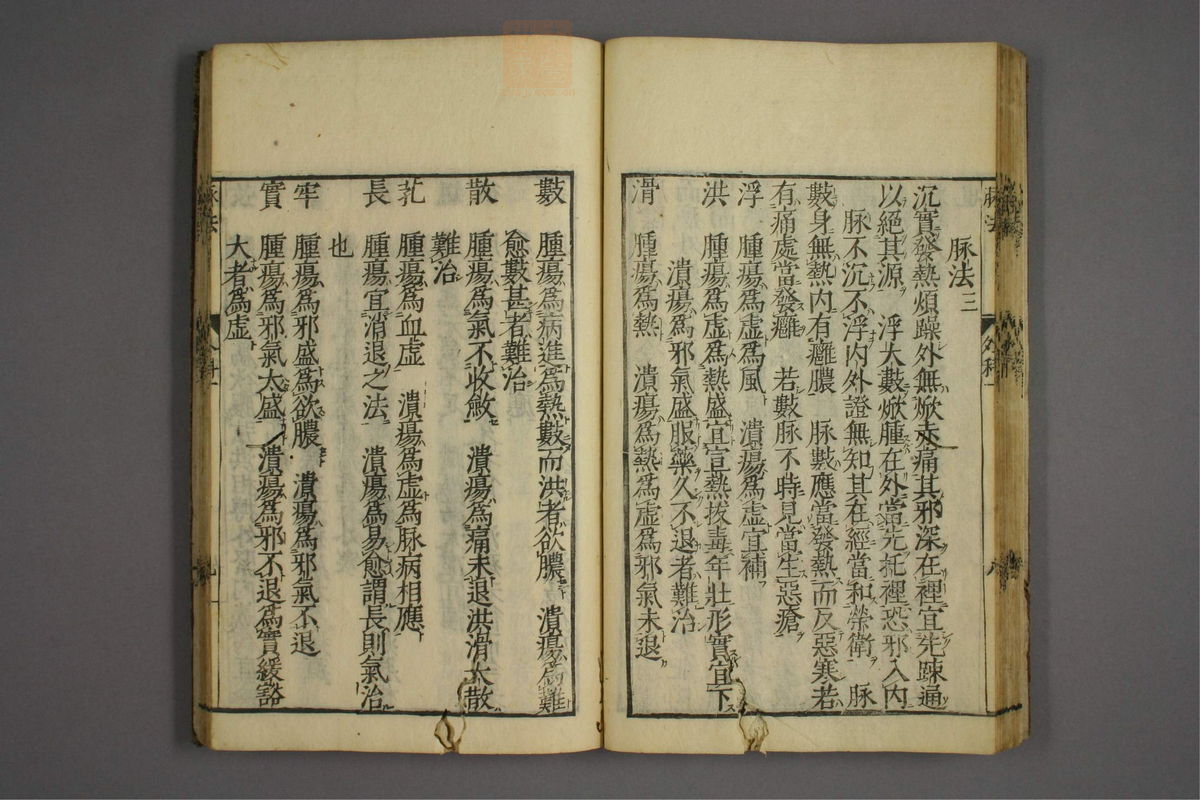 脉法三
沉實發熱煩躁外無焮赤痛其邪深在裡宜先踈通
以絕其源　浮大數焮腫在外當先托裡恐邪入内
脉不沉不浮内外證無知其在經當和榮衛　脉
數身無熱内有癰膿　脉數應當發熱而反惡寒若
有痛處當發癰　若數脉不時見當生惡瘡
浮　腫瘍爲虚爲風　潰瘍爲虚宜補
洪　腫瘍爲虚爲熱盛宜宣熱拔毒年壯形實宜下
潰瘍爲邪氣盛服藥久不退者難治
滑　腫瘍爲熱　潰瘍爲熱爲虚爲邪氣未退
數　腫瘍爲病進爲熱數而洪者欲膿　潰瘍爲難
愈數甚者難治
散　腫瘍爲氣不收斂　潰瘍爲痛未退洪滑大散
難治
芤　腫瘍爲血虚　潰瘍爲虚爲脉病相應
長　腫瘍宜消退之法　潰瘍爲易愈謂長則氣治
也
牢　腫瘍爲邪盛爲欲膿　潰瘍爲邪氣不退
實　腫瘍爲邪氣太盛　潰瘍爲邪不退爲實緩谿
大者爲虚
脉法　外科一　九